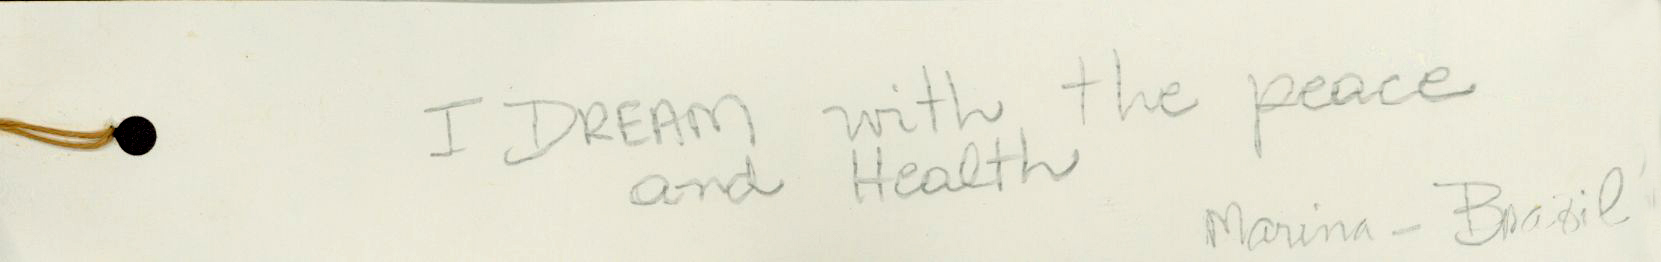 I DREAM with the peace
and Health
Marina - Brazil